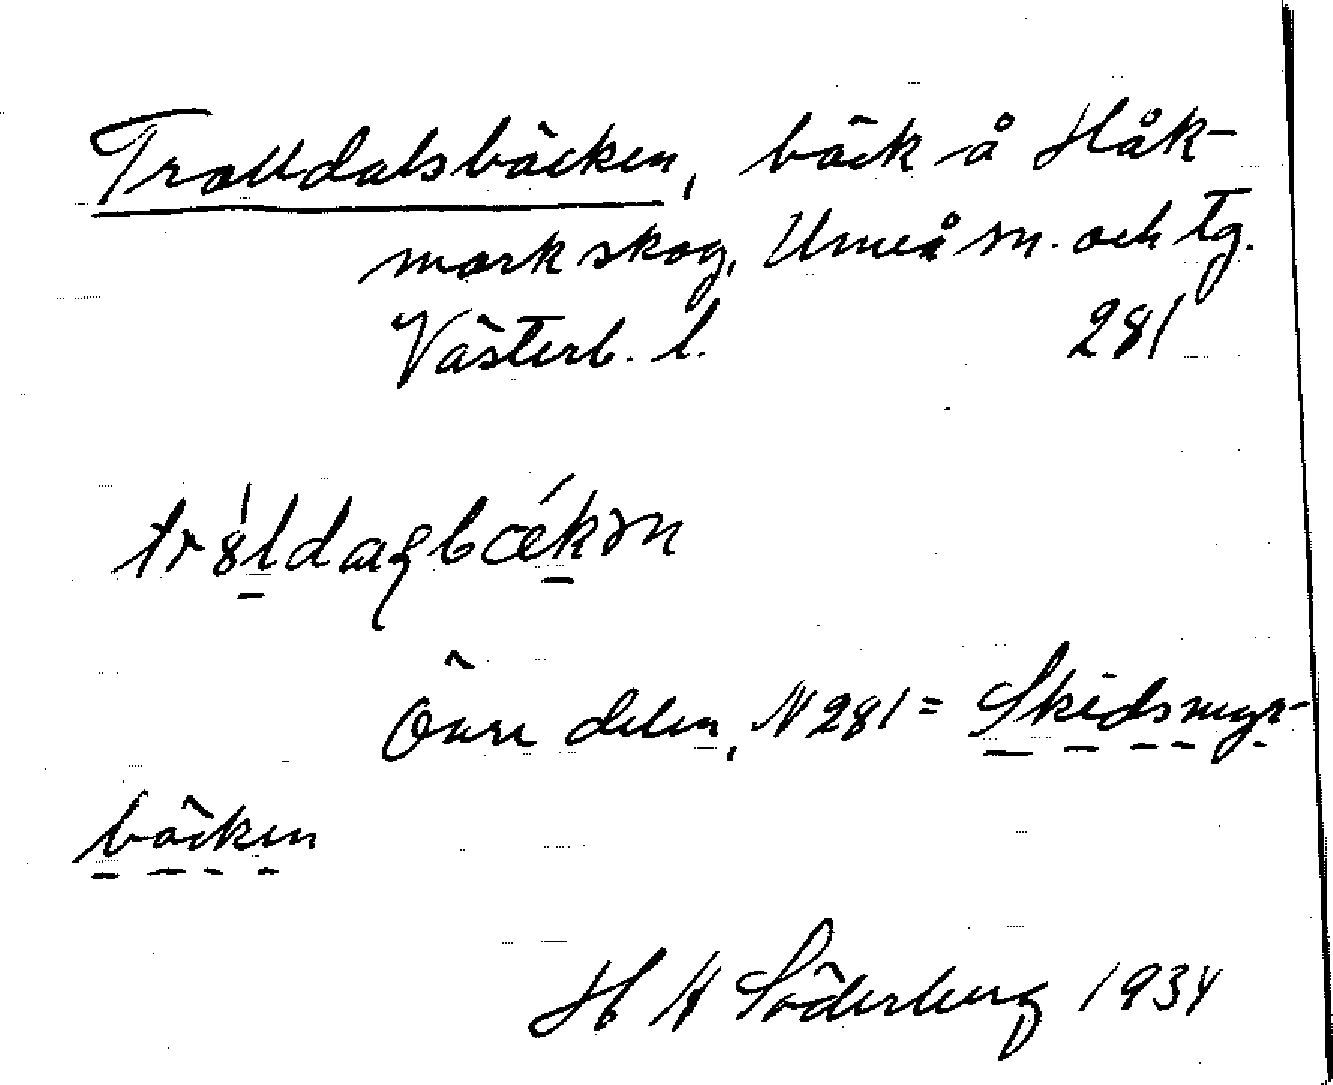 Trolldalsbäcken, bäck å Håk-
mark skog, Umeå sn. och tg.
Västerb. l. 281
Övre delen, N 281 = Skidsmyr-
bäcken
H W Söderberg 1934